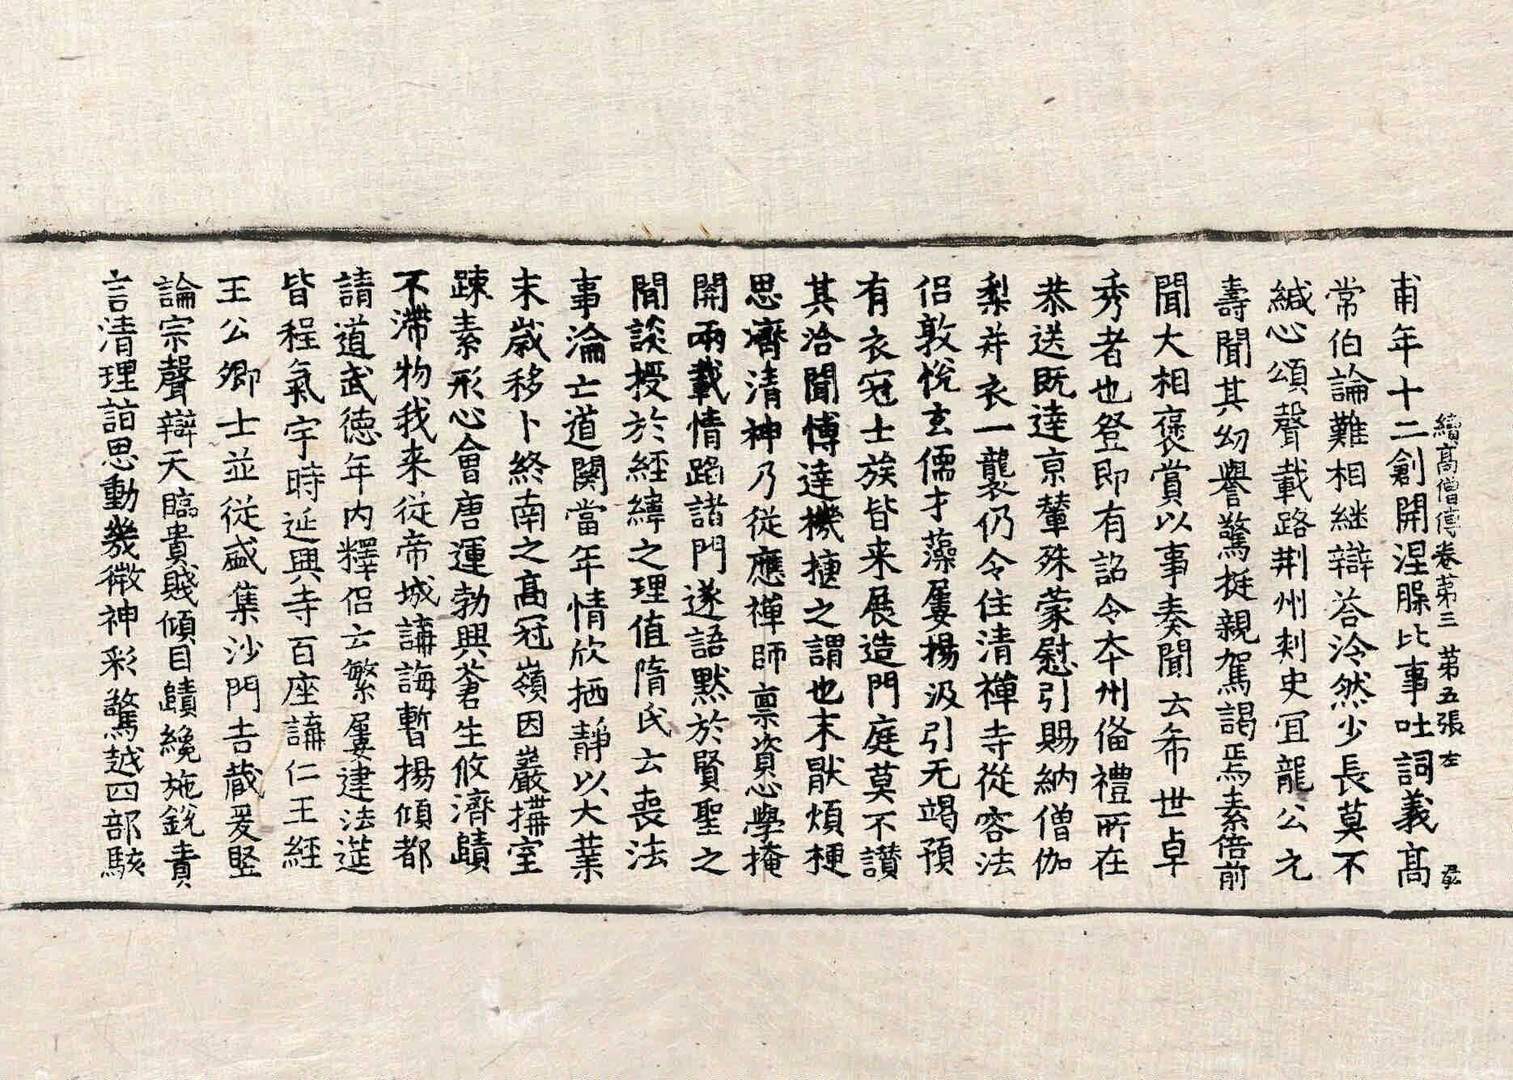 續高僧傳卷苐三 苐五張 左
甫年十二創開涅槃比事吐詞義髙
常伯論難相継辯荅泠然少長莫不
緘心頌聲載路荆州刾史宜龍公元
壽聞其㓜譽驚挺親駕謁焉素倍前
聞大相褒賞以事奏聞云希世卓
秀者也登即有詔令夲州俻禮所在
恭送既達京輦殊蒙慰引賜納僧伽
梨并衣一襲仍令住清禪寺從容法
侣敦悅玄儒才藻屢揚汲引无竭預
有衣冠士族皆来展造門庭莫不讃
其洽聞博達機揵之謂也末猒煩梗
思濟清神乃従應禪師禀資心學掩
開兩載情蹈諸門遂語默於賢聖之
間談授於經緯之理值隋氏云喪法
事淪亡道闋當年情欣栖靜以大業
末嵗移卜終南之髙冠嶺因巖搆室
踈素形心會唐運勃興蒼生攸濟賾
不滯物我来従帝城講誨暫揚傾都
請道武徳年内釋侣云繁屢建法莚
皆程氣宇時延興寺百座講仁王經
王公卿士並従盛集沙門吉藏爰竪
論宗聲辯天臨貴賤傾目賾纔施銳責
言清理詣思動幾微神彩驚越四部駭